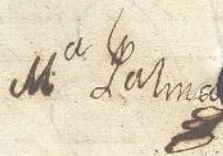 M.ª Palma